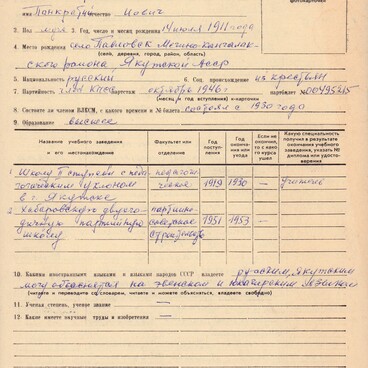 фотокарточки
имя Панкратий отчество Иович
2. Пол муж 3. Год, число и месяц рождения 14 июля 1911 года
4. Место рождения село Павловск Мегино-Кангалас-
(село, деревня, город, район, область)
ского района Якутской АССР
5. Национальность русский 6. Соц. происхождение из крестьян
7. Партийность член КПСС партстаж октябрь 1946 г. партбилет № 00495315
(месяц и год вступления) и-карточки
8. Состоите ли членом ВЛКСМ, с какого времени и № билета состоял с 1930 года
9. Образование высшее
Название учебного заведения и его местонахождение
Факультет или отделение
Год поступления
Год окончания или ухода
Если не окончил, то с какого курса ушел
Какую специальность получил в результате окончания учебного заведения, указать № диплома или удостоверения
1 Школу II ступени с педа- педагоги-
гогическим уклоном ческое 1919 1930 — учитель
в г. Якутске
2 Хабаровскую двухго- партийно
дичную партийную советское 1951 1953 —
школу строительство
10. Какими иностранными языками и языками народов СССР владеете русским, якутским
могу объясняться на эвенском и юкагирском языках
(читаете и переводите со словарем, читаете и можете объясняться, владеете свободно)
11. Ученая степень, ученое звание —
12. Какие имеете научные труды и изобретения —